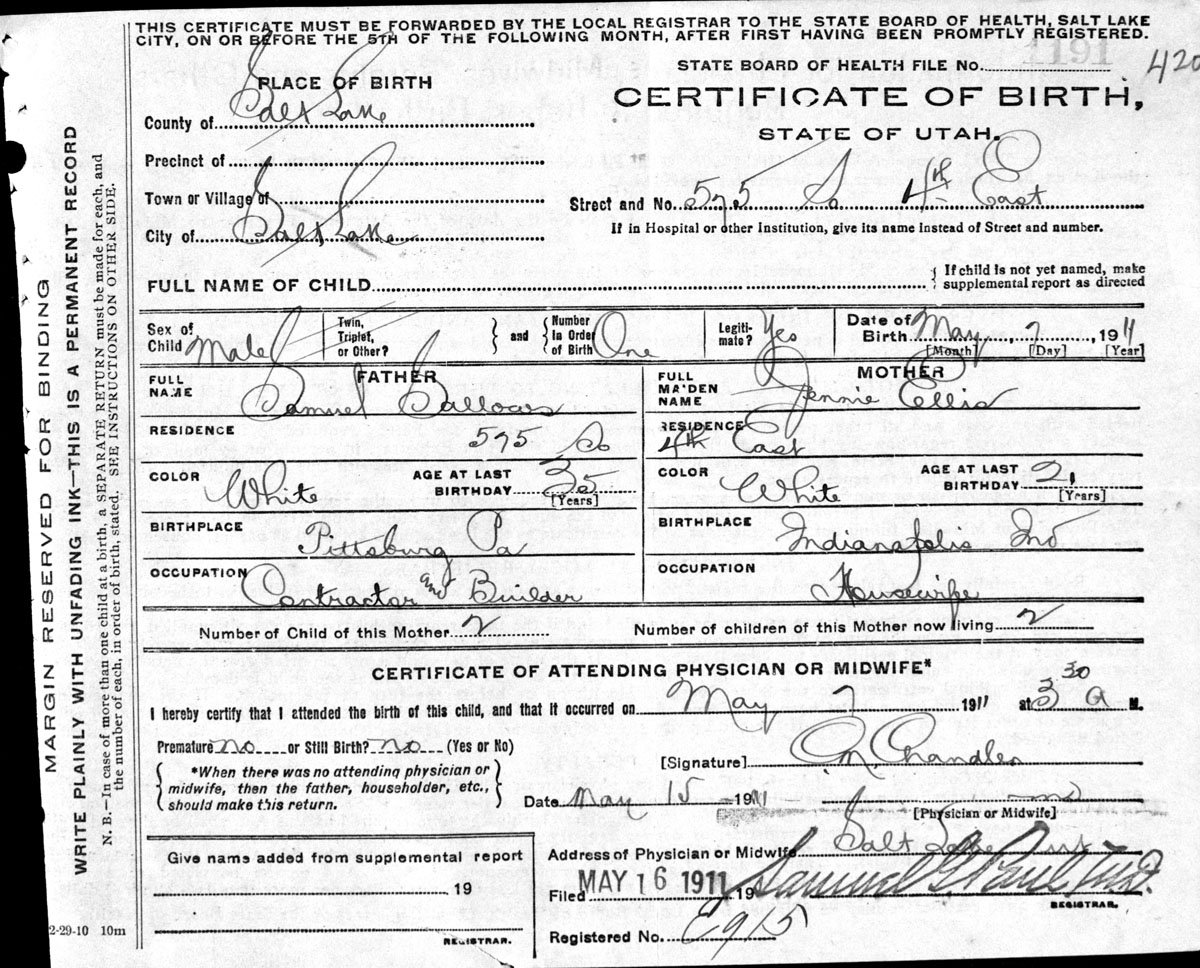 THIS CERTIFICATE MUST BE FORWARDED BY THE LOCAL REGISTRAR TO THE STATE BOARD OF HEALTH, SALT LAKE
CITY, ON OR BEFORE THE 5TH OF THE FOLLOWING MONTH, AFTER FIRST HAVING BEEN PROMPTLY REGISTERED.
PLACE OF BIRTH
STATE BOARD OF HEALTH FILE No. 420
CERTIFICATE OF BIRTH,
STATE OF UTAH.
County of Salt Lake
Precinct of
Town or Village of
Street and No. 575 So 4th East
City of Salt Lake
If in Hospital or other Institution, give its name instead of Street and number.
FULL NAME OF CHILD
If child is not yet named, make
supplemental report as directed
Sex of Child Male
Twin, Triplet, or Other?
and
Number in Order of Birth One
Legitimate? Yes
Date of Birth May 7 1911
[Month] [Day] [Year]
FATHER
MOTHER
FULL NAME Samuel
FULL MAIDEN NAME Jennie Ellis
RESIDENCE 575 So
RESIDENCE 4th East
COLOR White
AGE AT LAST BIRTHDAY 35 [Years]
COLOR White
AGE AT LAST BIRTHDAY 21 [Years]
BIRTHPLACE Pittsburg Pa
BIRTHPLACE Indianapolis Ind
OCCUPATION Contractor and Builder
OCCUPATION Housewife
Number of Child of this Mother 2
Number of children of this Mother now living 2
CERTIFICATE OF ATTENDING PHYSICIAN OR MIDWIFE*
I hereby certify that I attended the birth of this child, and that it occurred on May 7 1911 at 3 30 a M.
Premature no or Still Birth? no (Yes or No)
[Signature] Chandler
*When there was no attending physician or
midwife, then the father, householder, etc.,
should make this return.
Date May 15 1911
[Physician or Midwife]
Give name added from supplemental report
Address of Physician or Midwife Salt Lake
19
Filed MAY 16 1911 19
REGISTRAR.
REGISTRAR.
Registered No. E915
2-29-10 10m
MARGIN RESERVED FOR BINDING
WRITE PLAINLY WITH UNFADING INK—THIS IS A PERMANENT RECORD
N. B.—In case of more than one child at a birth, a SEPARATE RETURN must be made for each, and
the number of each, in order of birth, stated. SEE INSTRUCTIONS ON OTHER SIDE.